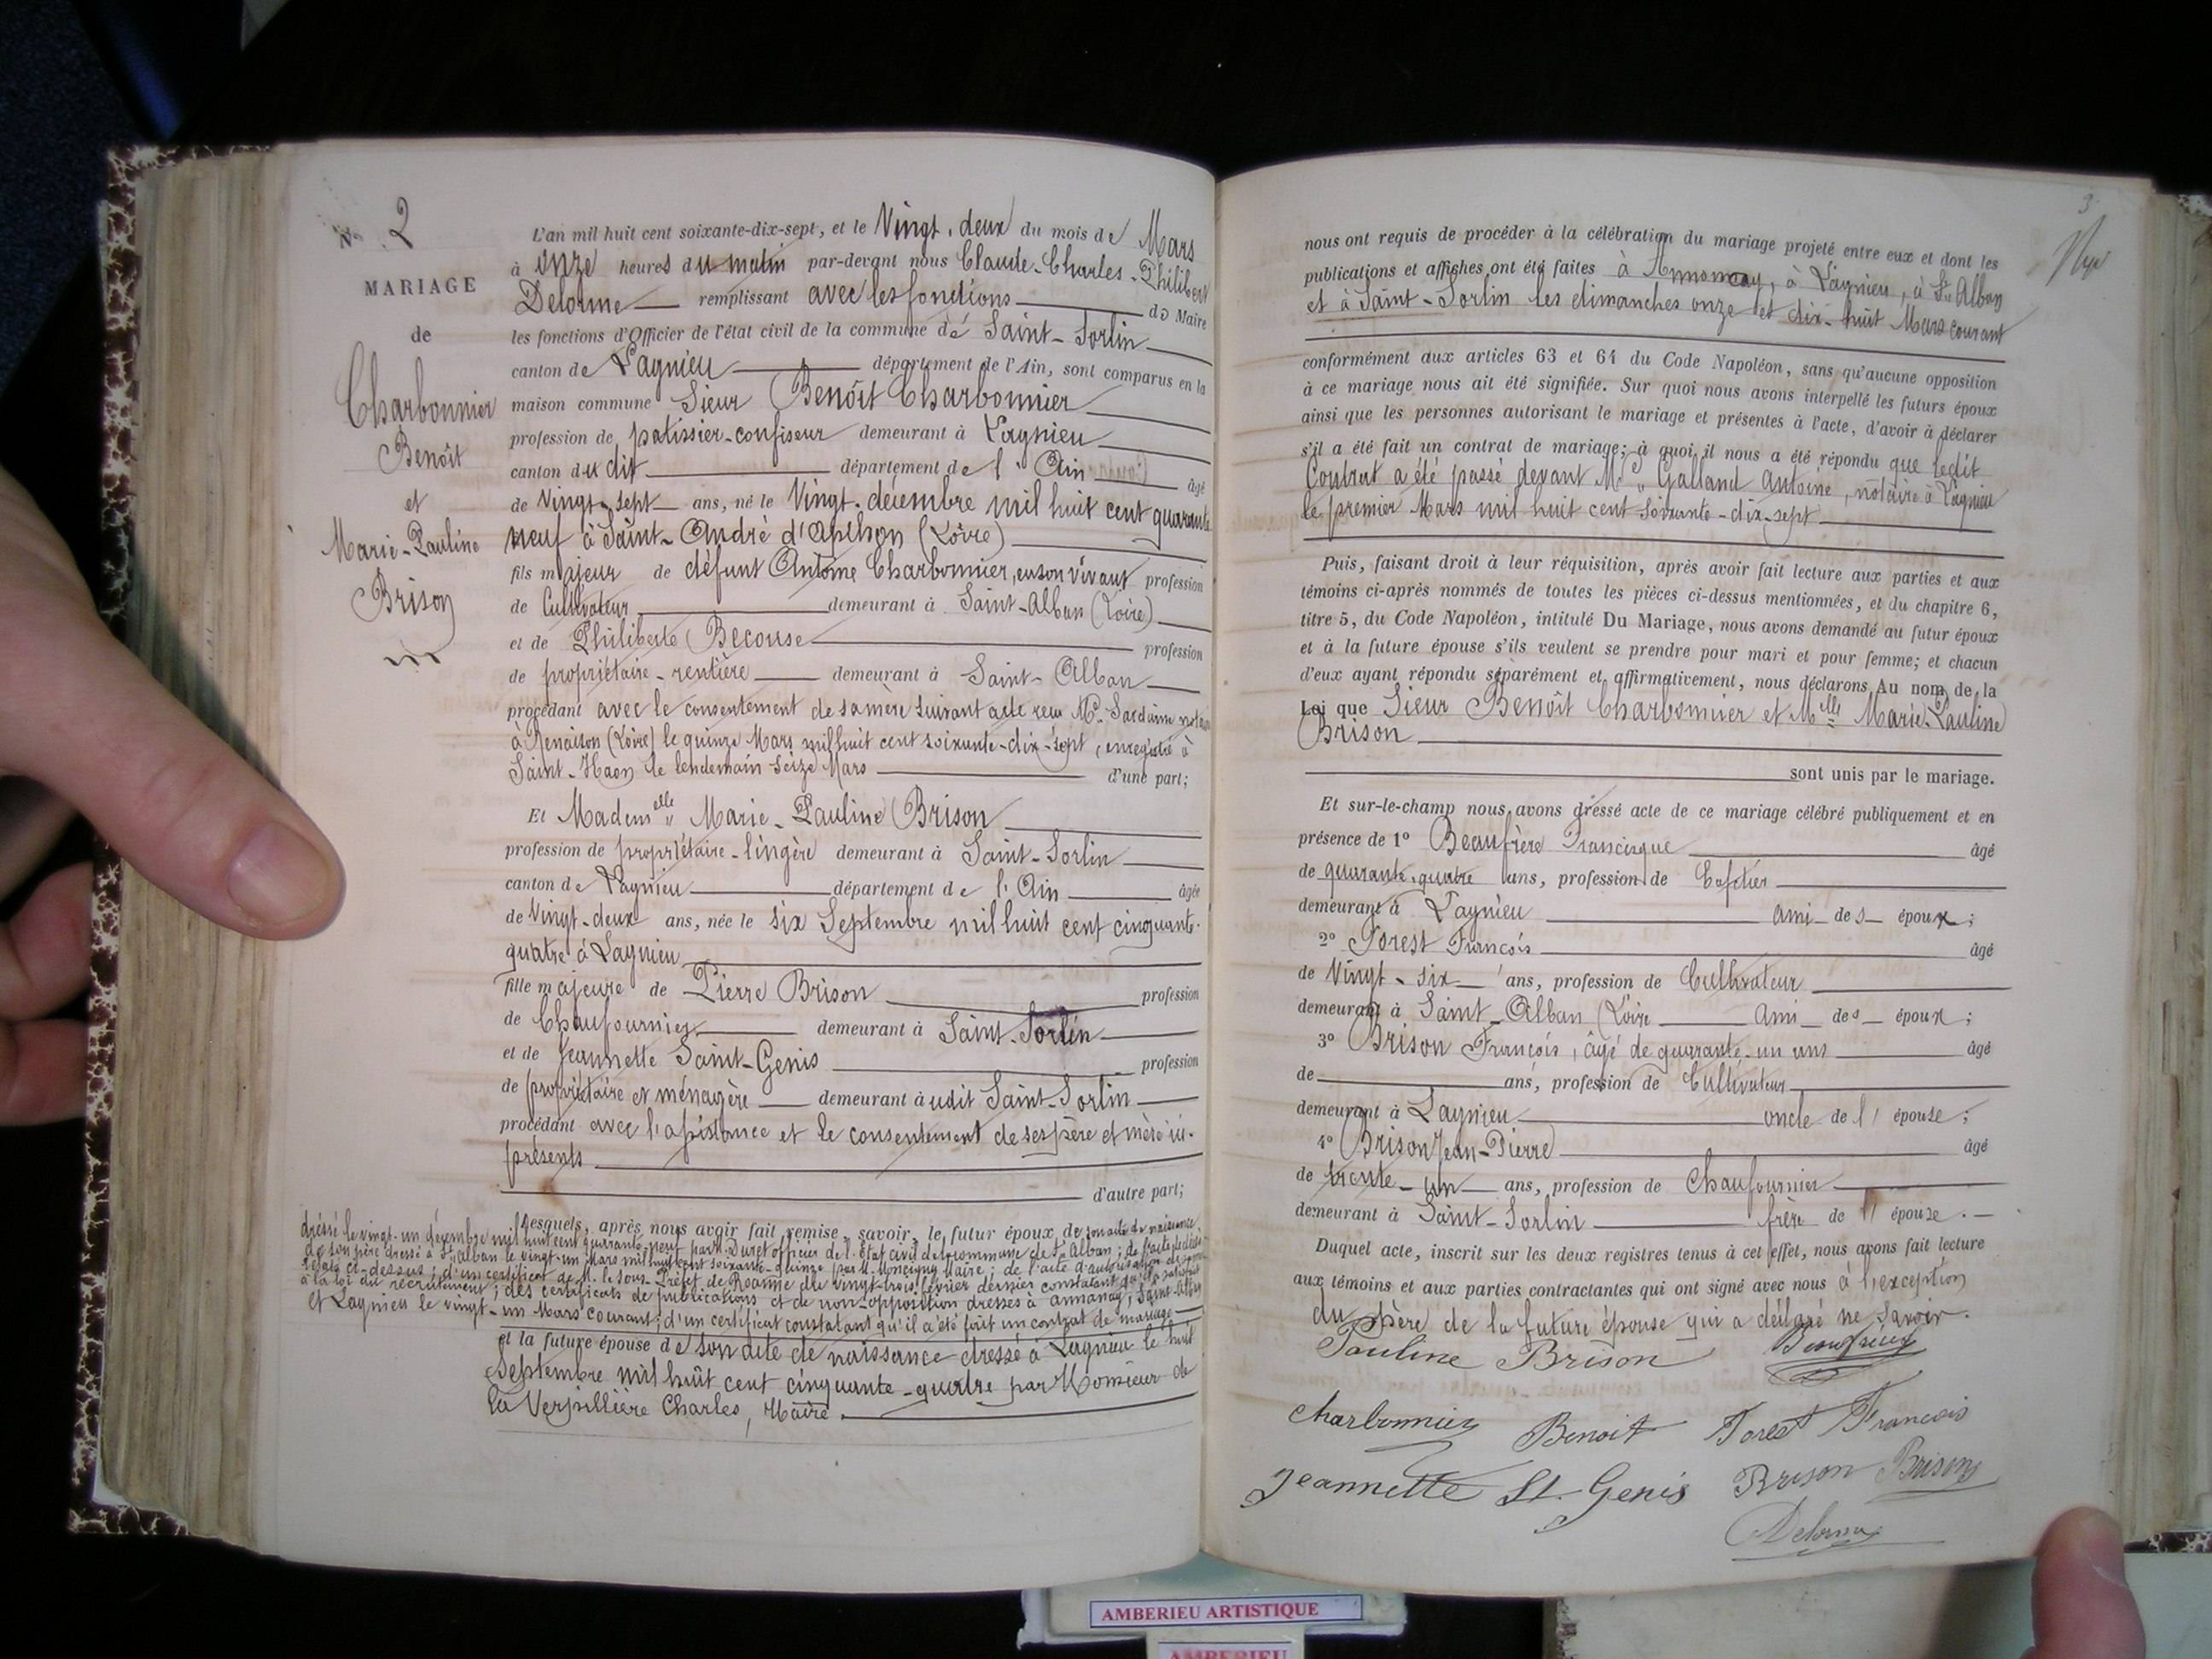 N° 2
MARIAGE
de
Charbonnier
Benoît
et
Marie-Pauline
Brison
L'an mil huit cent soixante-dix-sept, et le Vingt-deux du mois de Mars
à onze heures du matin par-devant nous Claude-Charles-Philibert
Delorme remplissant avec les fonctions de Maire
les fonctions d'Officier de l'état civil de la commune de Saint-Sorlin
canton de Lagnieu département de l'Ain, sont comparus en la
maison commune Sieur Benoît Charbonnier
profession de patissier-confiseur demeurant à Lagnieu
canton du dit département de l'Ain âgé
de Vingt-sept ans, né le Vingt-décembre mil huit cent quarante
neuf à Saint-André d'Apchon (Loire)
fils majeur de défunt Antoine Charbonnier, en son vivant profession
de Cultivateur demeurant à Saint-Alban (Loire)
et de Philiberte Becouse profession
de propriétaire-rentière demeurant à Saint-Alban
procédant avec le consentement de sa mère suivant acte reçu Me notaire
à Renaison (Loire) le quinze Mars mil huit cent soixante-dix-sept, enregistré à
Saint-Haon le lendemain seize Mars d'une part;
Et Madem elle Marie-Pauline Brison
profession de propriétaire-lingère demeurant à Saint-Sorlin
canton de Lagnieu département de l'Ain âgée
de Vingt-deux ans, née le six Septembre mil huit cent cinquante-
quatre à Lagnieu
fille majeure de Pierre Brison profession
de Chaufournier demeurant à Saint-Sorlin
et de Jeannette Saint-Genis profession
de propriétaire et ménagère demeurant à udit Saint-Sorlin
procédant avec l'assistance et le consentement de ses père et mère ici-
présents
d'autre part;
Lesquels, après nous avoir fait remise, savoir, le futur époux de son acte de naissance
dressé le vingt-un décembre mil huit cent quarante-neuf par M. Duret officier de l'État civil de la commune de St Alban; de l'acte de décès
de son père dressé à St Alban le vingt-un Mars mil huit cent soixante-quinze par M. Maire; de l'acte d'autorisation de sa mère
ci-dessus; d'un certificat de M. le Sous-Préfet de Roanne du vingt-trois février dernier constatant qu'il a satisfait
à la loi du recrutement; des certificats de publications et de non-opposition dressés à Annonay, Saint-Alban
et Lagnieu le vingt-un Mars courant; d'un certificat constatant qu'il a été fait un contrat de mariage
et la future épouse de son acte de naissance dressé à Lagnieu le huit
Septembre mil huit cent cinquante-quatre par Monsieur de
la Verpillière Charles, Maire.
3
nous ont requis de procéder à la célébration du mariage projeté entre eux et dont les
publications et affiches ont été faites à Annonay, à Lagnieu, à St Alban
et à Saint-Sorlin les dimanches onze et dix-huit Mars courant
conformément aux articles 63 et 64 du Code Napoléon, sans qu'aucune opposition
à ce mariage nous ait été signifiée. Sur quoi nous avons interpellé les futurs époux
ainsi que les personnes autorisant le mariage et présentes à l'acte, d'avoir à déclarer
s'il a été fait un contrat de mariage; à quoi il nous a été répondu que ledit
Contrat a été passé devant Me Galland Antoine, notaire à Lagnieu
le premier Mars mil huit cent soixante-dix-sept
Puis, faisant droit à leur réquisition, après avoir fait lecture aux parties et aux
témoins ci-après nommés de toutes les pièces ci-dessus mentionnées, et du chapitre 6,
titre 5, du Code Napoléon, intitulé Du Mariage, nous avons demandé au futur époux
et à la future épouse s'ils veulent se prendre pour mari et pour femme; et chacun
d'eux ayant répondu séparément et affirmativement, nous déclarons Au nom de la
Loi que Sieur Benoît Charbonnier et Mlle Marie-Pauline
Brison
sont unis par le mariage.
Et sur-le-champ nous avons dressé acte de ce mariage célébré publiquement et en
présence de 1° Beaufrère Francisque âgé
de quarante-quatre ans, profession de Cafetier
demeurant à Lagnieu ami des époux;
2° Forest François âgé
de Vingt-six ans, profession de Cultivateur
demeurant à Saint-Alban (Loire ami des époux;
3° Brison François, âgé de quarante-un ans âgé
de ans, profession de Cultivateur
demeurant à Lagnieu oncle de l'épouse;
4° Brison Jean-Pierre âgé
de trente-un ans, profession de Chaufournier
demeurant à Saint-Sorlin frère de l'épouse.
Duquel acte, inscrit sur les deux registres tenus à cet effet, nous avons fait lecture
aux témoins et aux parties contractantes qui ont signé avec nous à l'exception
du père de la future épouse qui a déclaré ne savoir.
Pauline Brison Beaufrère
Charbonnier Benoit Forest François
Jeannette St-Genis Brison Brison
Delorme
AMBERIEU ARTISTIQUE
AMBERIEU